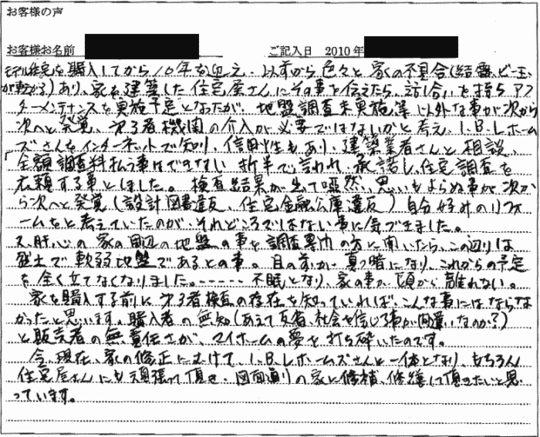 お客様の声
お客様お名前 ご記入日 2010年
モデル住宅を購入してから10年を迎え、以前から色々と家の不具合(結露、ビー玉
が転がる)あり、家を建築した住宅屋さんにその事を伝えたら、話し合いを持ちアフ
ターメンテナンスを実施予定となったが、地盤調査未実施等以外な事が次から
次へと発覚、第3者機関の介入が必要ではないかと考え、I.B.Lホーム
ズさんをインターネットで知り、信用性もあり、建築業者さんと相談、
「全額調査料払う事はできない折半で」言われ、承諾し、住宅調査を
依頼する事としました。検査結果が出て唖然、思いもよらぬ事が次か
ら次へと発覚(設計図書違反、住宅金融公庫違反)自分好みのリフ
ォームをと考えていたのが、それどころではない事に気づきました。
又、肝心の家の周辺の地盤の事を調査専門の方に聞いたら、この辺りは
盛土で軟弱地盤であるとの事。目の前が真っ暗になり、これからの予定
を全く立てなくなりました。……不眠となり、家の事が頭から離れない。
家を購入する前に第3者検査の存在を知っていれば、こんな事にはならな
かったと思います。購入者の無知(あえて反省、社会を信じる事が間違いなのか?)
と販売者の無責任さが、マイホームの夢を打ち砕いたのです。
今、現在、家の修正にむけて、I.B.Lホームズさんと一体となり、もちろん
住宅屋さんにも頑張って頂き、図面通りの家に修補、修繕して頂きたいと思
っています。